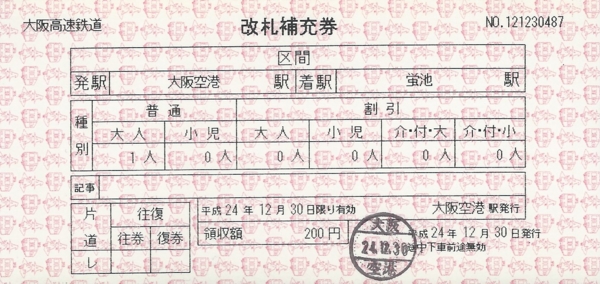 大阪高速鉄道 改札補充券 NO.121230487
区間
発駅 大阪空港 駅 着駅 蛍池 駅
種別 普通 割引
大人 小児 大人 小児 介・付・大 介・付・小
1人 0人 0人 0人 0人 0人
記事
片道 往復 平成24年12月30日限り有効 大阪空港 駅発行
往券 復券 領収額 200円 平成24年12月30日発行
レ 途中下車前途無効
大阪
24.12.30
空港